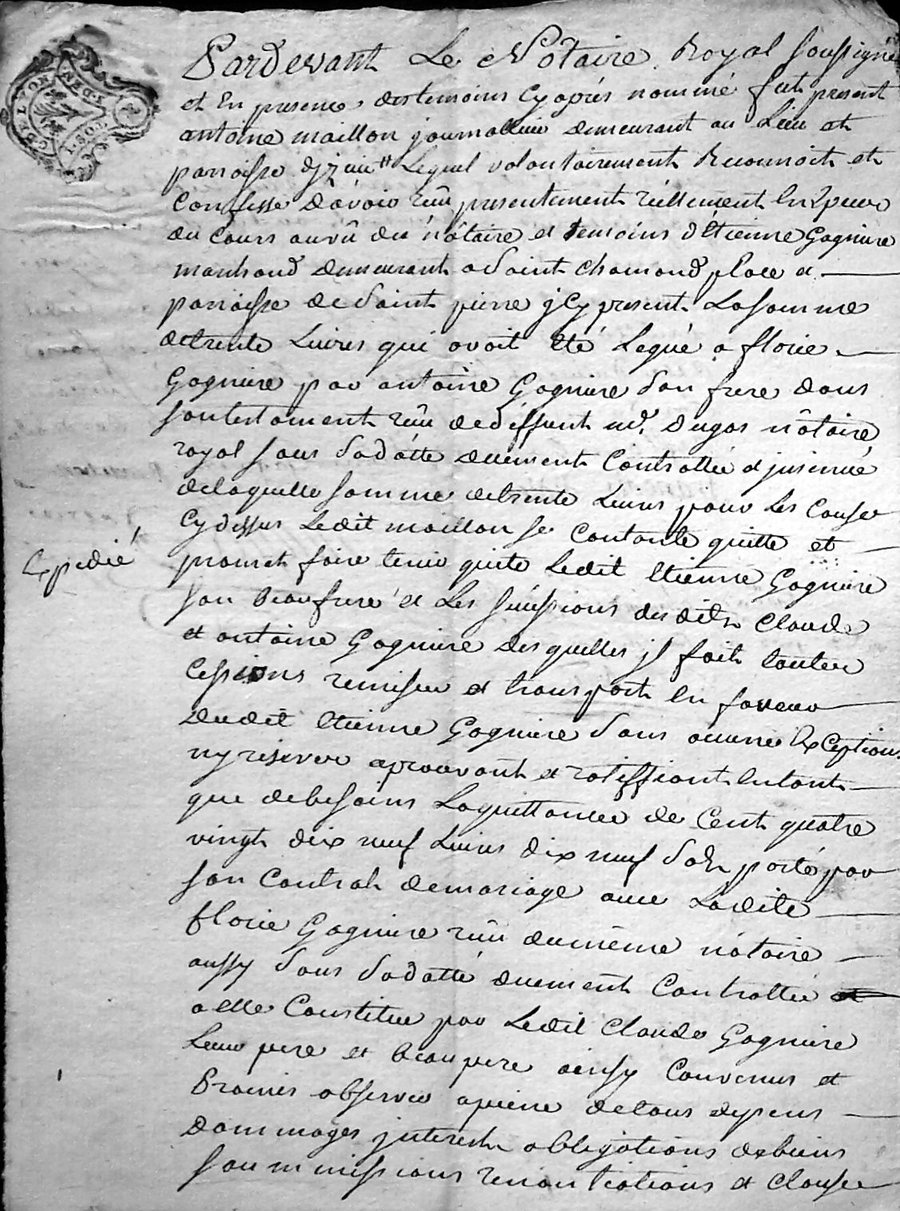 Pardevant Le Notaire Royal soussigné
et En presence des temoins cy aprés nommé fut present
antoine maillon journallier demeurant au Lieu et
parroisse d'jzieux Lequel volontairement Reconnoit et
Confesse d'avoir reçû presentement réellement En Especes
du Cours au vû du nôtaire et temoins d'Etienne Gagniere
marchand demeurant a Saint chamond place et
parroisse de Saint pierre jcy present La somme
de trente Livres qui avoit été Legué a florie
Gagniere par antoine Gagniere son frere dans
son testament reçû de deffunt me. Dugas nôtaire
royal sous sa datte duement Controllée et jnsinué
de laquelle somme de trente Livres pour Les Causes
Cy dessus Ledit maillon se Contente quitte et
promet faire tenir quite Ledit Etienne Gagniere
Expedié
son Beaufrere et Les successions desdits Claude
et antoine Gagniere desquelles jl fait toutes
Cessions remises et transport En faveur
dudit Etienne Gagniere sans aucune Exceptions
ny reserves aprouvant et ratiffiant En tant
que de besoins La quittance de Cent quatre
vingt dix neuf Livres dix neuf sols porté par
son Contrat de mariage avec Ladite
florie Gagniere reçû du même nôtaire
aussy sous sa datte duement Controllé
a elle Constitué par Ledit Claude Gagniere
Leur pere et beaupere ainsy Convenus et
Promis observer a peine de tous depens
dommages jnterests obligations de biens
soummissions renontiations et Clauses